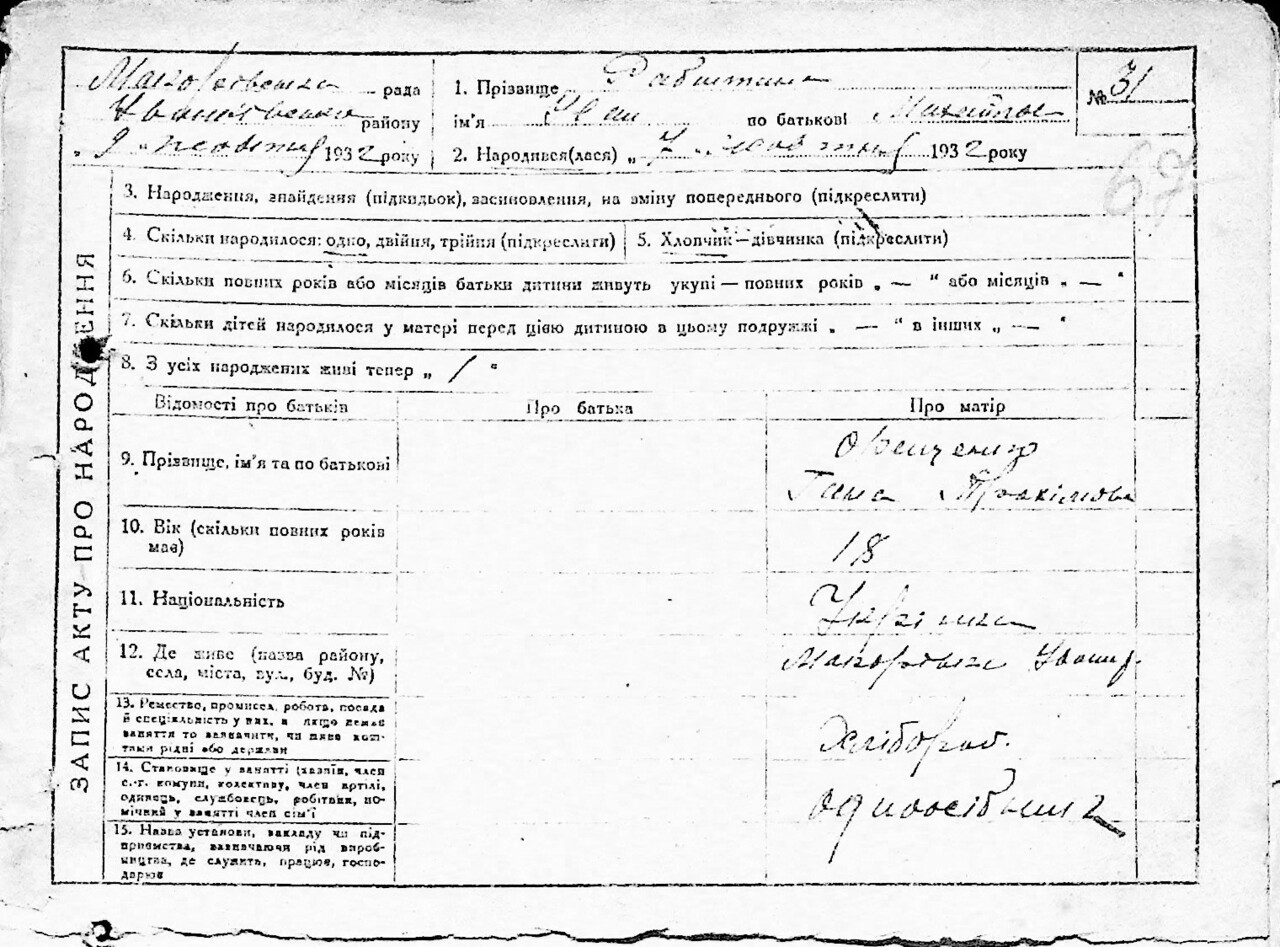 рада
району
„ 9 „ жовтня 1932 року
1. Прізвище
ім'я Іван по батькові
2. Народився(лася) „ 7 „ жовтня 1932 року
№ 31
69
ЗАПИС АКТУ ПРО НАРОДЖЕННЯ
3. Народження, знайдення (підкидьок), засиновлення, на зміну попереднього (підкреслити)
4. Скільки народилося: одно, двійня, трійня (підкреслити)
5. Хлопчик—дівчинка (підкреслити)
6. Скільки повних років або місяців батьки дитини живуть укупі — повних років „ — “ або місяців „ — “
7. Скільки дітей народилося у матері перед цією дитиною в цьому подружжі „ — “ в інших „ — “
8. З усіх народжених живі тепер „ / “
Відомості про батьків
Про батька
Про матір
9. Прізвище, ім'я та по батькові
Гана
10. Вік (скільки повних років
має)
18
11. Національність
12. Де живе (назва району,
села, міста, вул., буд. №)
13. Ремество, промисел, робота, посада
й спеціяльність у них, а якщо немає
заняття то зазначити, чи живе кош-
тами рідні або держави
Хлібороб.
14. Становище у занятті (хазяїн, член
с.-г. комуни, колективу, член артілі,
одинець, службовець, робітник, по-
мічний у занятті член сім'ї
одноосібниц
15. Назва установи, закладу чи під-
приємства, зазначаючи рід вироб-
ництва, де служить, працює, госпо-
дарює